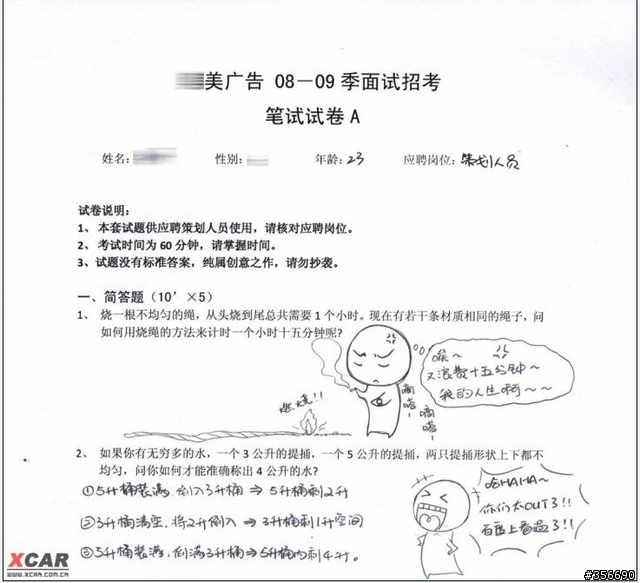 美广告 08－09 季面试招考
笔试试卷 A
姓名: 性别: 年龄: 23 应聘岗位: 策划人员
试卷说明:
1、 本套试题供应聘策划人员使用，请核对应聘岗位。
2、 考试时间为 60 分钟，请掌握时间。
3、 试题没有标准答案，纯属创意之作，请勿抄袭。
一、简答题（10’×5）
1、 烧一根不均匀的绳，从头烧到尾总共需要 1 个小时。现在有若干条材质相同的绳子，问
如何用烧绳的方法来计时一个小时十五分钟呢?
唉～
又浪费十五分钟～
我的人生啊～～
嘀嗒～
嘀嗒～
燃烧!!
2、 如果你有无穷多的水，一个 3 公升的提捅，一个 5 公升的提捅，两只提捅形状上下都不
均匀，问你如何才能准确称出 4 公升的水?
①5升桶装满,倒入3升桶⇒5升桶剩2升
②3升桶清空,将2升倒入⇒3升桶剩1升空间
③5升桶装满,倒满3升桶⇒5升桶内剩4升。
哈HAHA~
你们太OUT了!!
百度上看过了!!
XCAR
WWW.XCAR.COM.CN
#356690